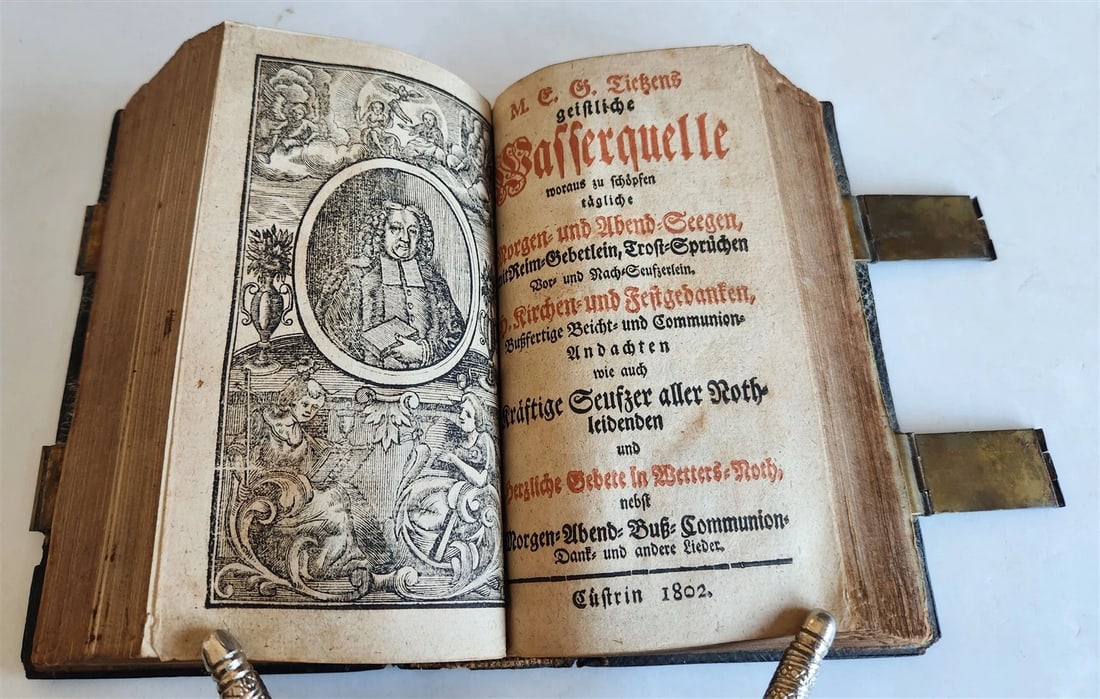 M. E. G. Tietzens
geistliche
Wasserquelle
woraus zu schöpfen
tägliche
Morgen- und Abend-Seegen,
Reim-Gebetlein, Trost-Sprüchen
Vor- und Nach-Seufzerlein,
Kirchen- und Festgedanken,
Bußfertige Beicht- und Communion-
Andachten
wie auch
Kräftige Seufzer aller Noth-
leidenden
und
herzliche Gebete in Wetters-Noth,
nebst
Morgen- Abend- Buß- Communion-
Dank- und andere Lieder.
Cüstrin 1802.